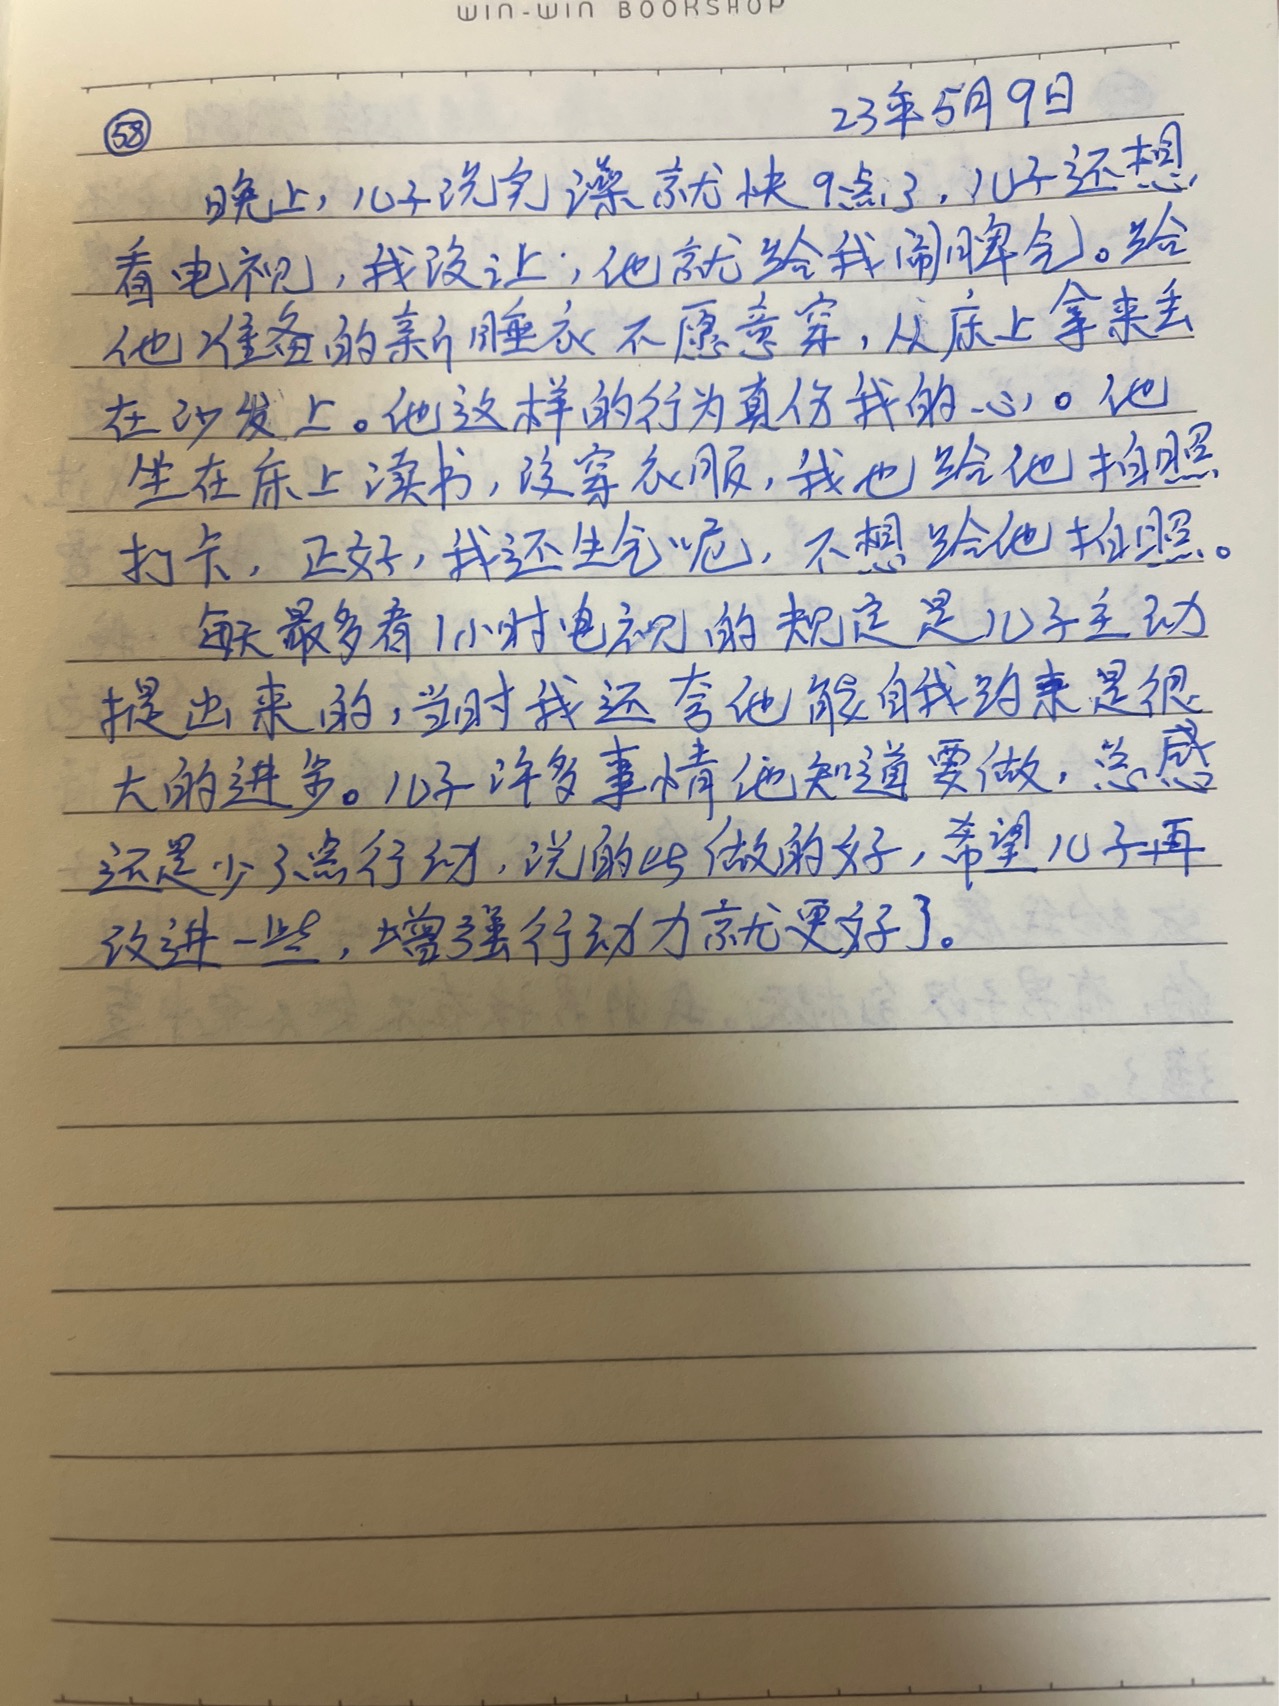 WIN-WIN BOOKSHOP
58
23年5月9日
晚上，儿子洗完澡就快9点了，儿子还想
看电视，我没让，他就给我闹脾气。给
他准备的新睡衣不愿意穿，从床上拿来丢
在沙发上。他这样的行为真伤我的心。他
坐在床上读书，没穿衣服，我也给他拍照
打卡，正好，我还生气呢，不想给他拍照。
每天最多看1小时电视的规定是儿子主动
提出来的，当时我还夸他能自我约束是很
大的进步。儿子许多事情他知道要做，总感
还是少了点行动，说的比做的好，希望儿子再
改进一些，增强行动力就更好了。